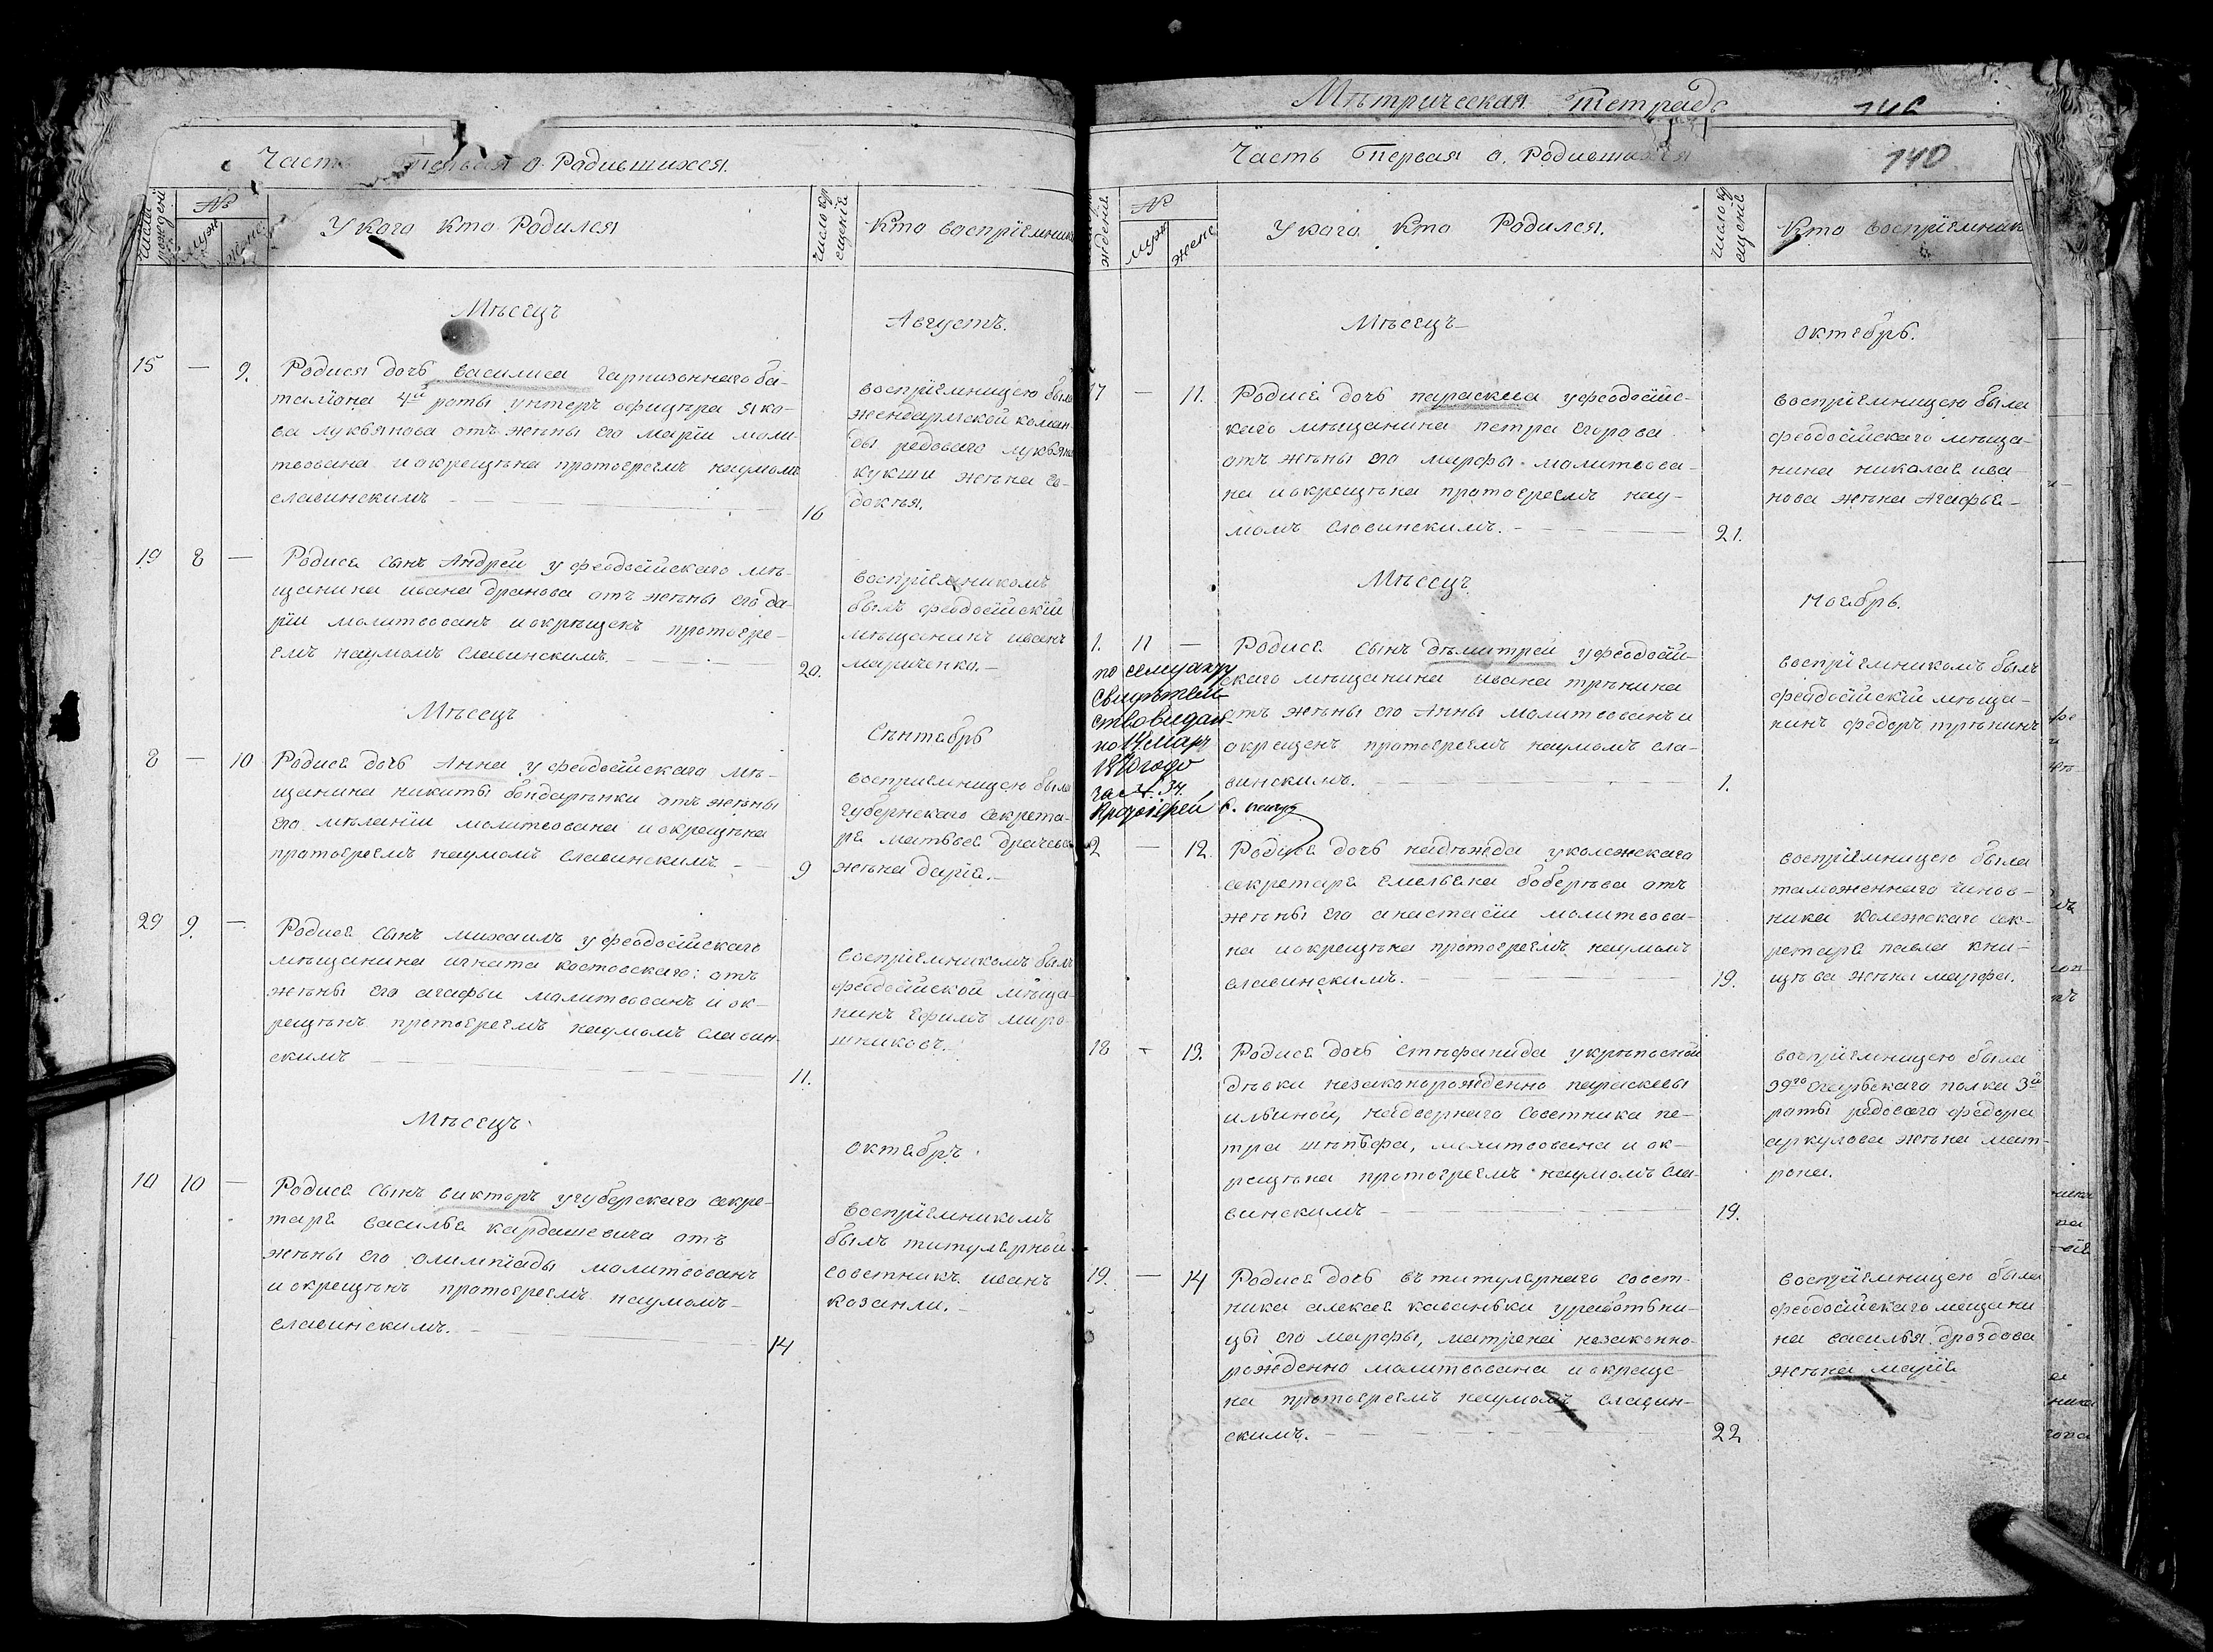 Часть Первая о Родившихся.
Числа рождений
№
муж
женс
У кого кто Родился
Число кр
ещенiе
Кто воспрiемник
Мѣсецъ
Августъ.
15 — 9.
Родися дочь василиса гарнизоннаго ба-
талiона 4й роты унтеръ офицѣра яко-
ва лукьянова отъ жѣны его марiи моли-
твована и окрещѣна протоереемъ наумомъ
славинскимъ
16
воспрiемницею была
жендармской коман
ды редоваго лукьяна
кукши жѣна ев-
докѣя.
19 8 —
Родисѧ сынъ Андрей у феодосiйскаго мѣ-
щанина ивана дранова отъ жѣны его да-
рiи молитвованъ и окрещенъ протоере-
емъ наумомъ славинскимъ.
20.
воспрiемникомъ
былъ феодосiйскiй
мѣщанинъ иванъ
мариченко.
Мѣсецъ
Сѣнтебрь
8 — 10
Родисѧ дочь Анна у феодосiйскаго мѣ-
щанина никиты бондарѣнки отъ жѣны
его мѣланiи молитвована и окрещѣна
протоереемъ наумомъ славинскимъ
9
воспрiемницею была
губернскаго секрета-
рѧ матвѣѧ драчева
жѣна дарiѧ.
29 9. —
Родисѧ сынъ михаилъ у феодосiйскаго
мѣщанина игната костовскаго: отъ
жѣны его агафьи молитвованъ и ок-
рещѣнъ протоереемъ наумомъ славин-
скимъ
11.
воспрiемникомъ былъ
феодосiйской мѣща-
нинъ ефимъ миро-
шниковъ.
Мѣсецъ
октебрь
10 10 —
Родисѧ сынъ викторъ у губерскаго секре-
тарѧ василья кардашевича отъ
жѣны его олимпiады молитвованъ
и окрещѣнъ протоереемъ наумомъ
славинскимъ.
14
воспрiемникомъ
былъ титулѧрной
советникъ иванъ
козанли.
Мѣтрическая Тетрадь
146
140
Часть Первая о Родившихся
ждение
№
муж
женс
У кого Кто Родился.
Число кр
ещенiе
Кто воспрiемник
Мѣсецъ
октебрь.
17 — 11.
Родисѧ дочь параскева у феодосiйс-
каго мѣщанина петра егорова
отъ жѣны его марфы молитвова-
на и окрещѣна протоереемъ нау-
момъ славинскимъ.
21.
воспрiемницею была
феодосiйскаго мѣща-
нина николаѧ ива-
нова жѣна Агафьѧ
Мѣсецъ
Ноебрь.
1. 11 —
Родисѧ сынъ дѣмитрей у феодосiй-
скаго мѣщанина ивана трѣнина
отъ жѣны его Анны молитвованъ и
окрещенъ протоереемъ наумомъ сла-
винскимъ.
1.
воспрiемникомъ былъ
феодосiйскiй мѣща-
нинъ федоръ трѣнинъ
по сему акту
свидѣтель
ство выдан-
но 14 мар
года
за № 34.
Протоiерей
2 — 12.
Родисѧ дочь надѣжда у колежскаго
секретарѧ емельѧна боберѣва отъ
жѣны его анастасiи молитвова-
на и окрещѣна протоереемъ наумомъ
славинскимъ.
19.
воспрiемницею была
таможеннаго чинов-
ника колежскаго сек-
ретарѧ павла кни-
щѣва жѣна марфа.
18 — 13.
Родисѧ дочь стѣфанида у крѣпосной
дѣвки незаконорожденно параскевы
ильиной, надворнаго советника пе-
тра молитвована и ок-
рещѣна протоереемъ наумомъ сла-
винскимъ
19.
воспрiемницею была
39го егарьскаго полка 3й
роты редоваго федора
аркулова жѣна мат-
рона.
19. — 14
Родисѧ дочь въ титулѧрнаго совет-
ника алексеѧ каваньки у работьни-
цы его марфы, матрена незаконно-
рожденно молитвована и окреще-
на протоереемъ наумомъ славин-
скимъ.
22
воспрiемницею была
феодосiйскаго мещани
на василья дроздова
жѣна марiѧ